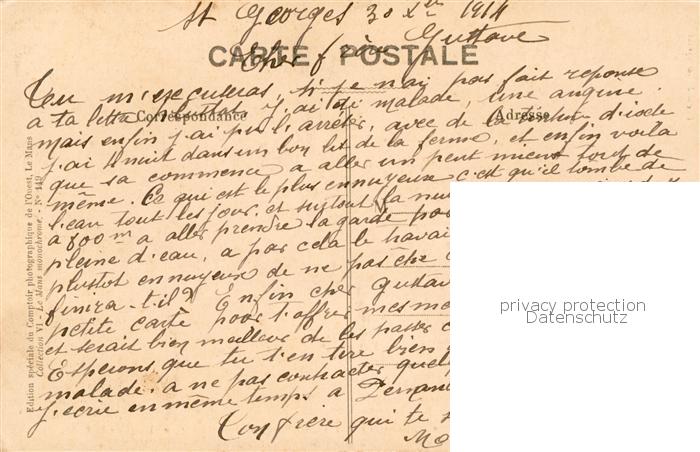 St Georges 30 Xbre 1914
CARTE POSTALE
Cher frère Gustave
Tu m'excuseras, si je n'ai pas fait reponse
a ta lettre plutot j'ai été malade, une angine
Correspondance
Adresse
mais enfin j'ai pu l'arreter, avec de la teinture d'iode
j'ai 1 nuit dans un bon lit de la ferme, et enfin voila
que sa commence a aller un peut mieux tout de
même. Ce qui est le plus ennuyeux c'est qu'il tombe de
l'eau tout les jour, et surtout la nui
a 800m a aller prendre la garde
pleine d'eau, a par cela le travai
plustot ennuyeux de ne pas
finira-t-il? Enfin cher Gustav
petite carte pour t'offrir mes me
et serait bien meilleur de les passer
Esperons que tu t'en tire bien
malade. a ne pas contracter quel
j'écrie en même temps a
Ton frère qui te
Edition spéciale du Comptoir photographique de l'Ouest, Le Mans
Collection VI - Le Mans monochrome. - N° 149
privacy protection
Datenschutz